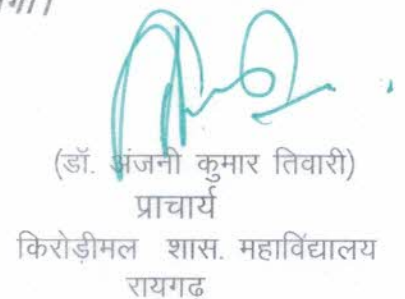 (डॉ. अंजनी कुमार तिवारी)
प्राचार्य
किरोड़ीमल शास. महाविद्यालय
रायगढ